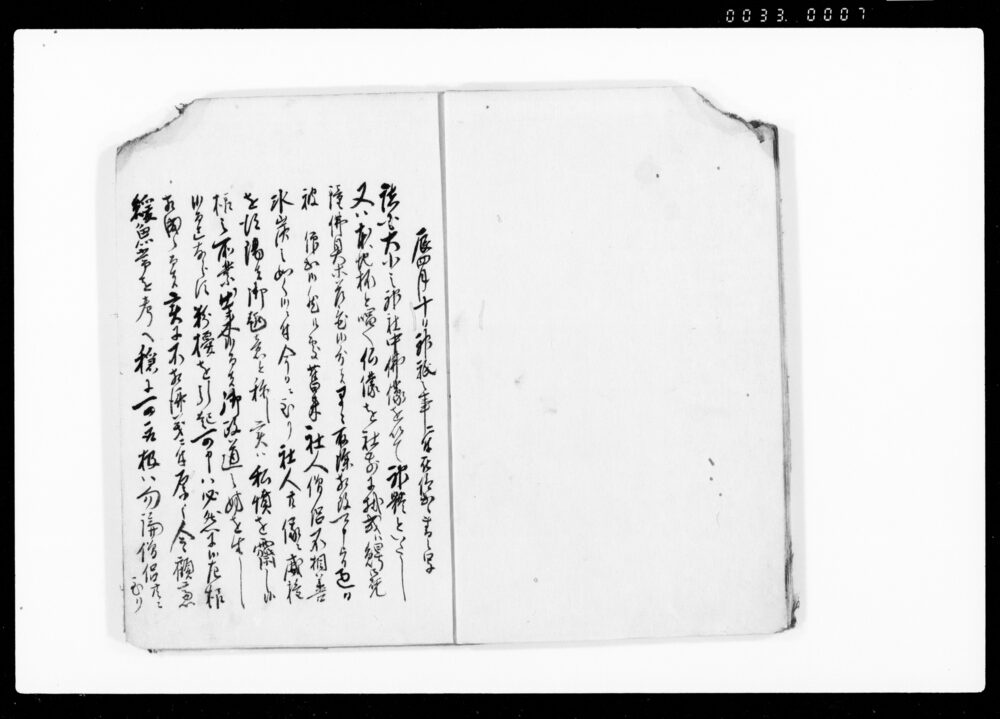 辰四月十日神祇事
諸国大小之神社中佛像を以て神體といたし
又ハ本地抔と唱へ佛像を社前に掛或ハ鰐口梵
鐘佛具等差置候分ハ早々取除相改可申旨過日
被 仰出候然ル処舊来社人僧侶不相善
氷炭之如く候ニ付今日ニ至り社人共俄ニ威権
を得陽ニ御趣意と称し実ハ私憤を齋し候
様之所業出来候而者御政道之妨を生し
候而已ならす紛擾を引起可申ハ必然に候左様
相成候而者実に不相済義ニ付厚く令顧慮
緩急宜を考へ穏に可取扱ハ勿論僧侶共ニ
至り
0033. 0007